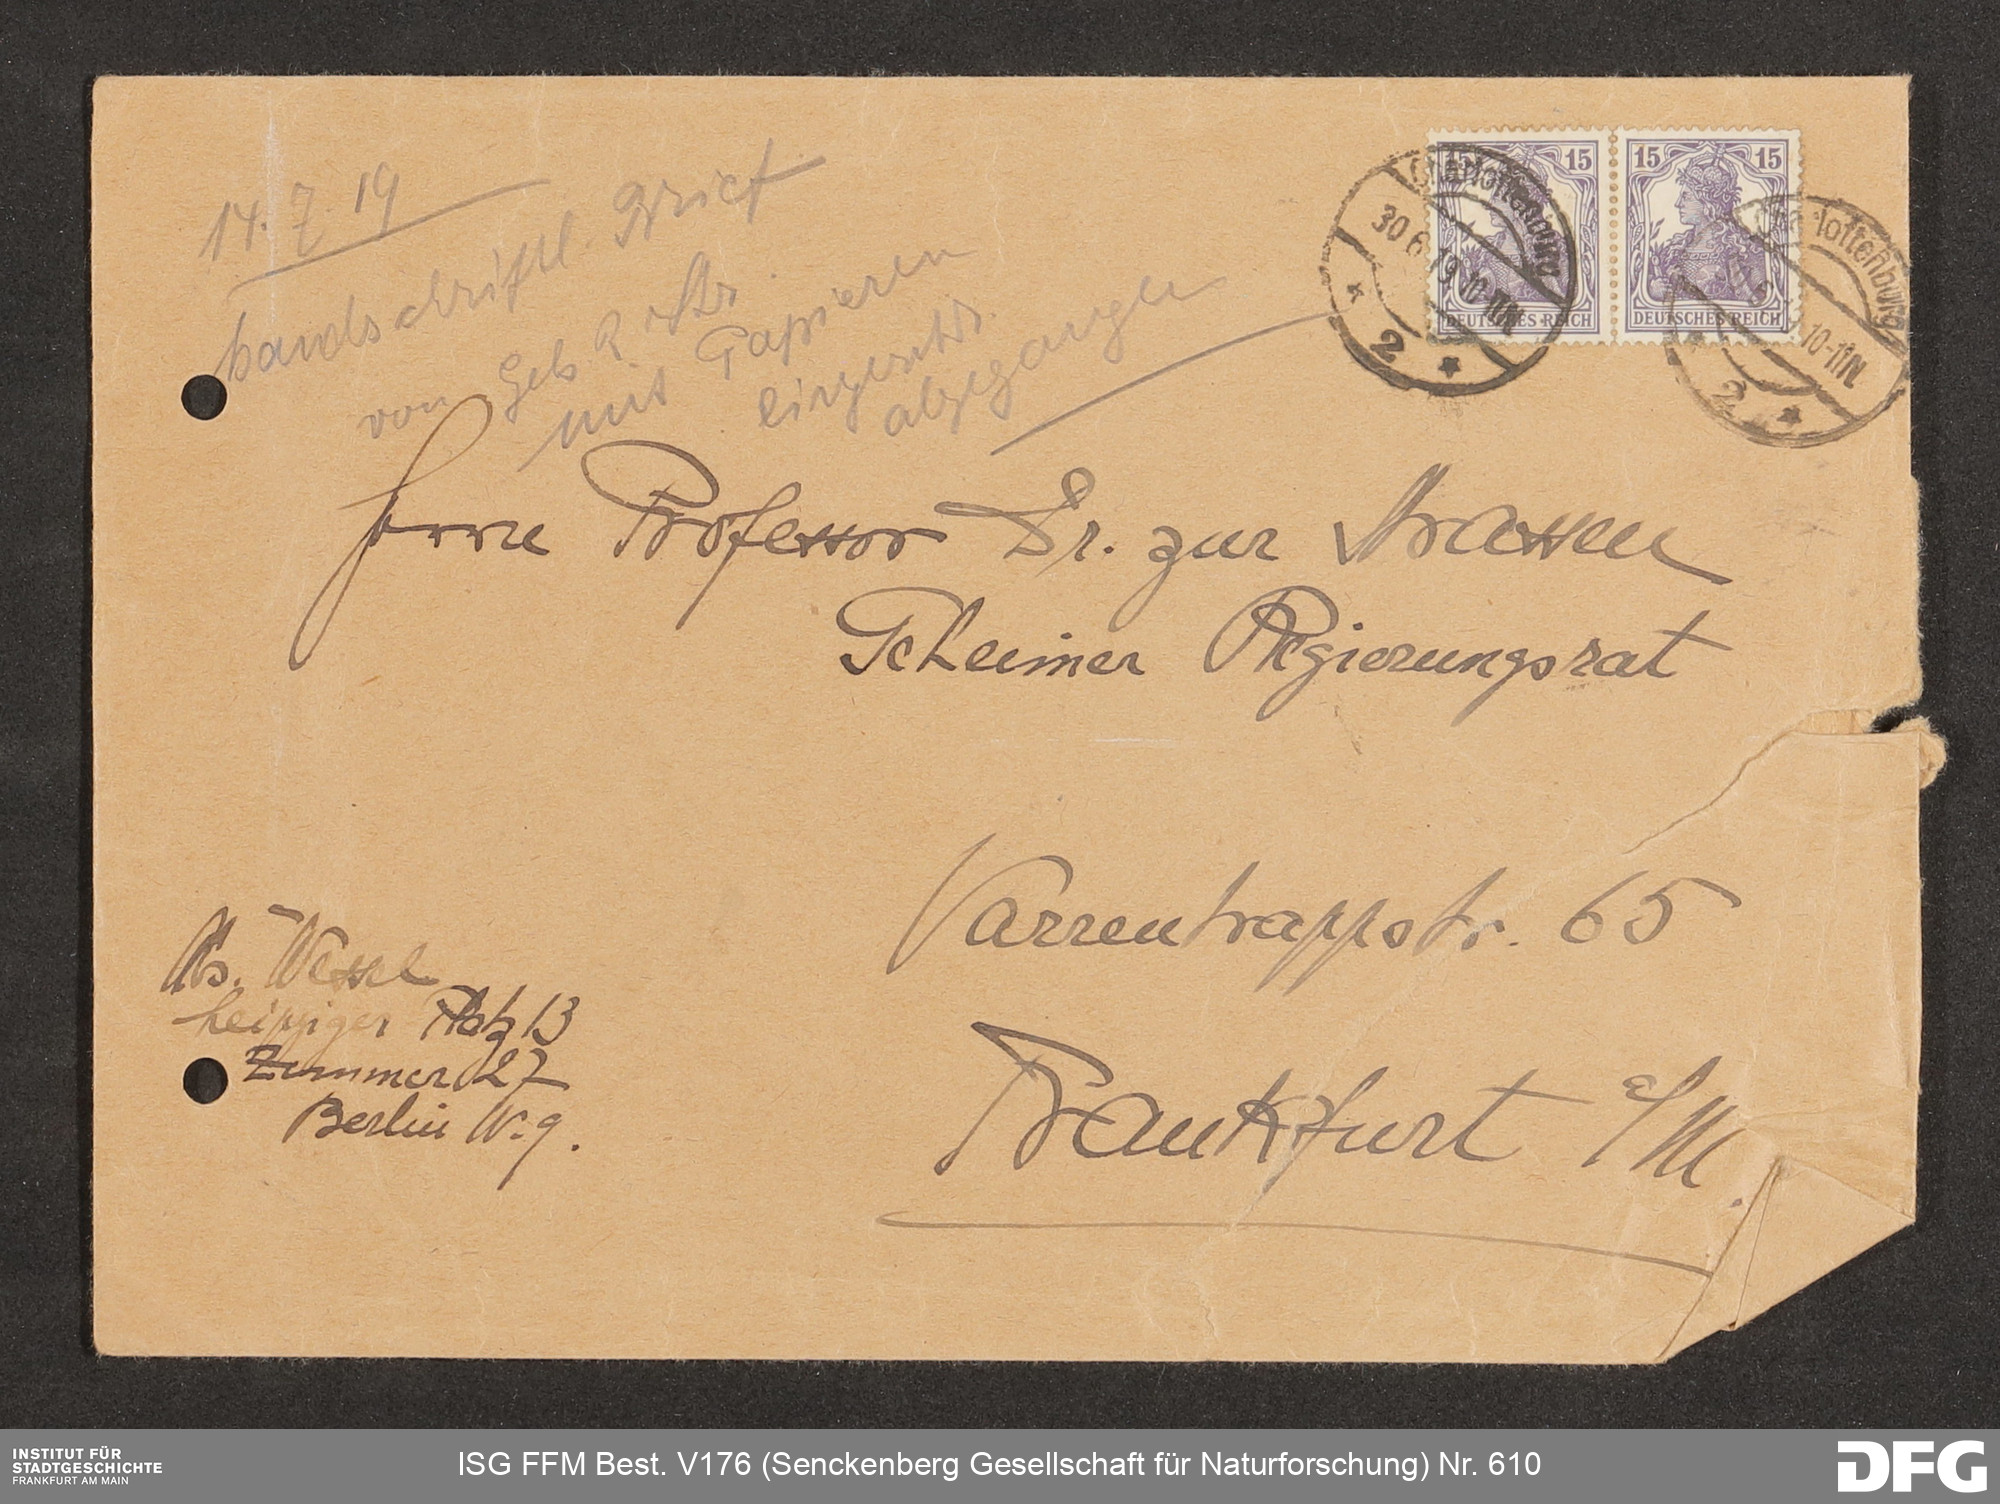 14.7.19
handschriftl. Brief
von Geh. R. z. Str.
mit Papieren
eingeschr.
abgegangen
15 15
15 15
DEUTSCHES REICH
DEUTSCHES REICH
Charlottenburg
30.6.19.10-11N
* 2 *
Charlottenburg
10-11N
* 2 *
Herrn Professor Dr. zur Strassen
Geheimer Regierungsrat
Varrentrappstr. 65
Frankfurt a/M.
Abs. Wessel
Leipziger Platz 13
Zimmer 27
Berlin W. 9.
INSTITUT FÜR
STADTGESCHICHTE
FRANKFURT AM MAIN
ISG FFM Best. V176 (Senckenberg Gesellschaft für Naturforschung) Nr. 610
DFG